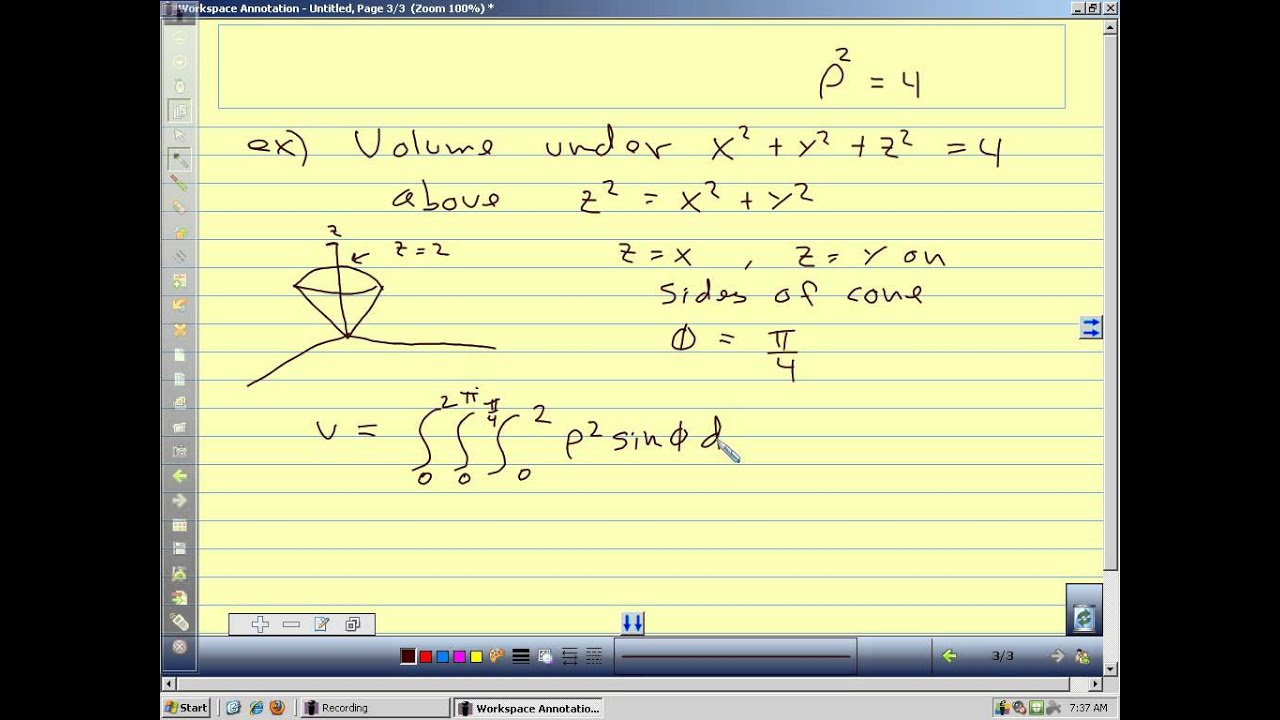 Workspace Annotation - Untitled, Page 3/3 (Zoom 100%) *
ρ² = 4
ex) Volume under x² + y² + z² = 4
above z² = x² + y²
z
z = 2
z = x , z = y on
sides of cone
φ = π/4
v = ∫₀^2π ∫₀^π/4 ∫₀^2 ρ² sin φ d
3/3
Start
Recording
Workspace Annotatio...
7:37 AM